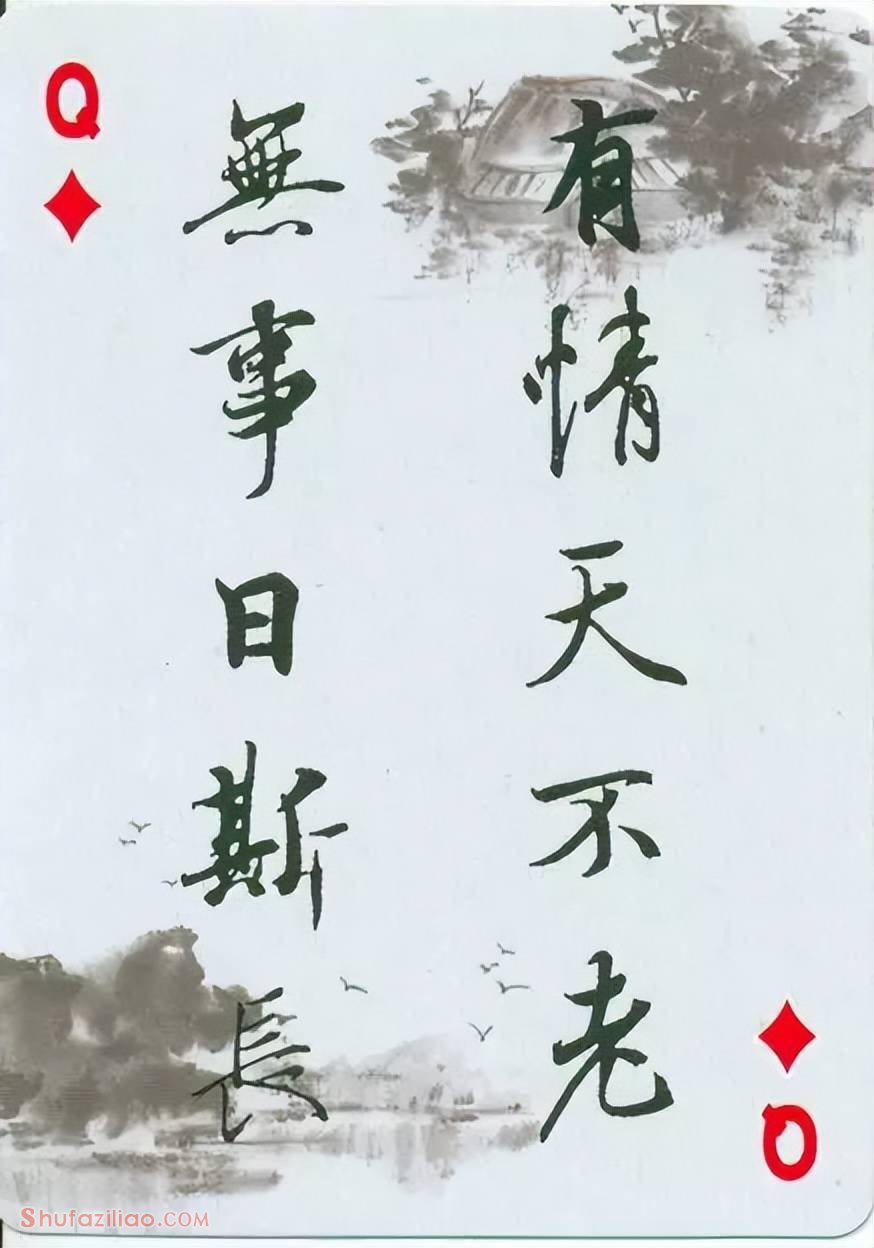 Q
有情天不老
無事日斯長
Q
Shufaziliao.COM